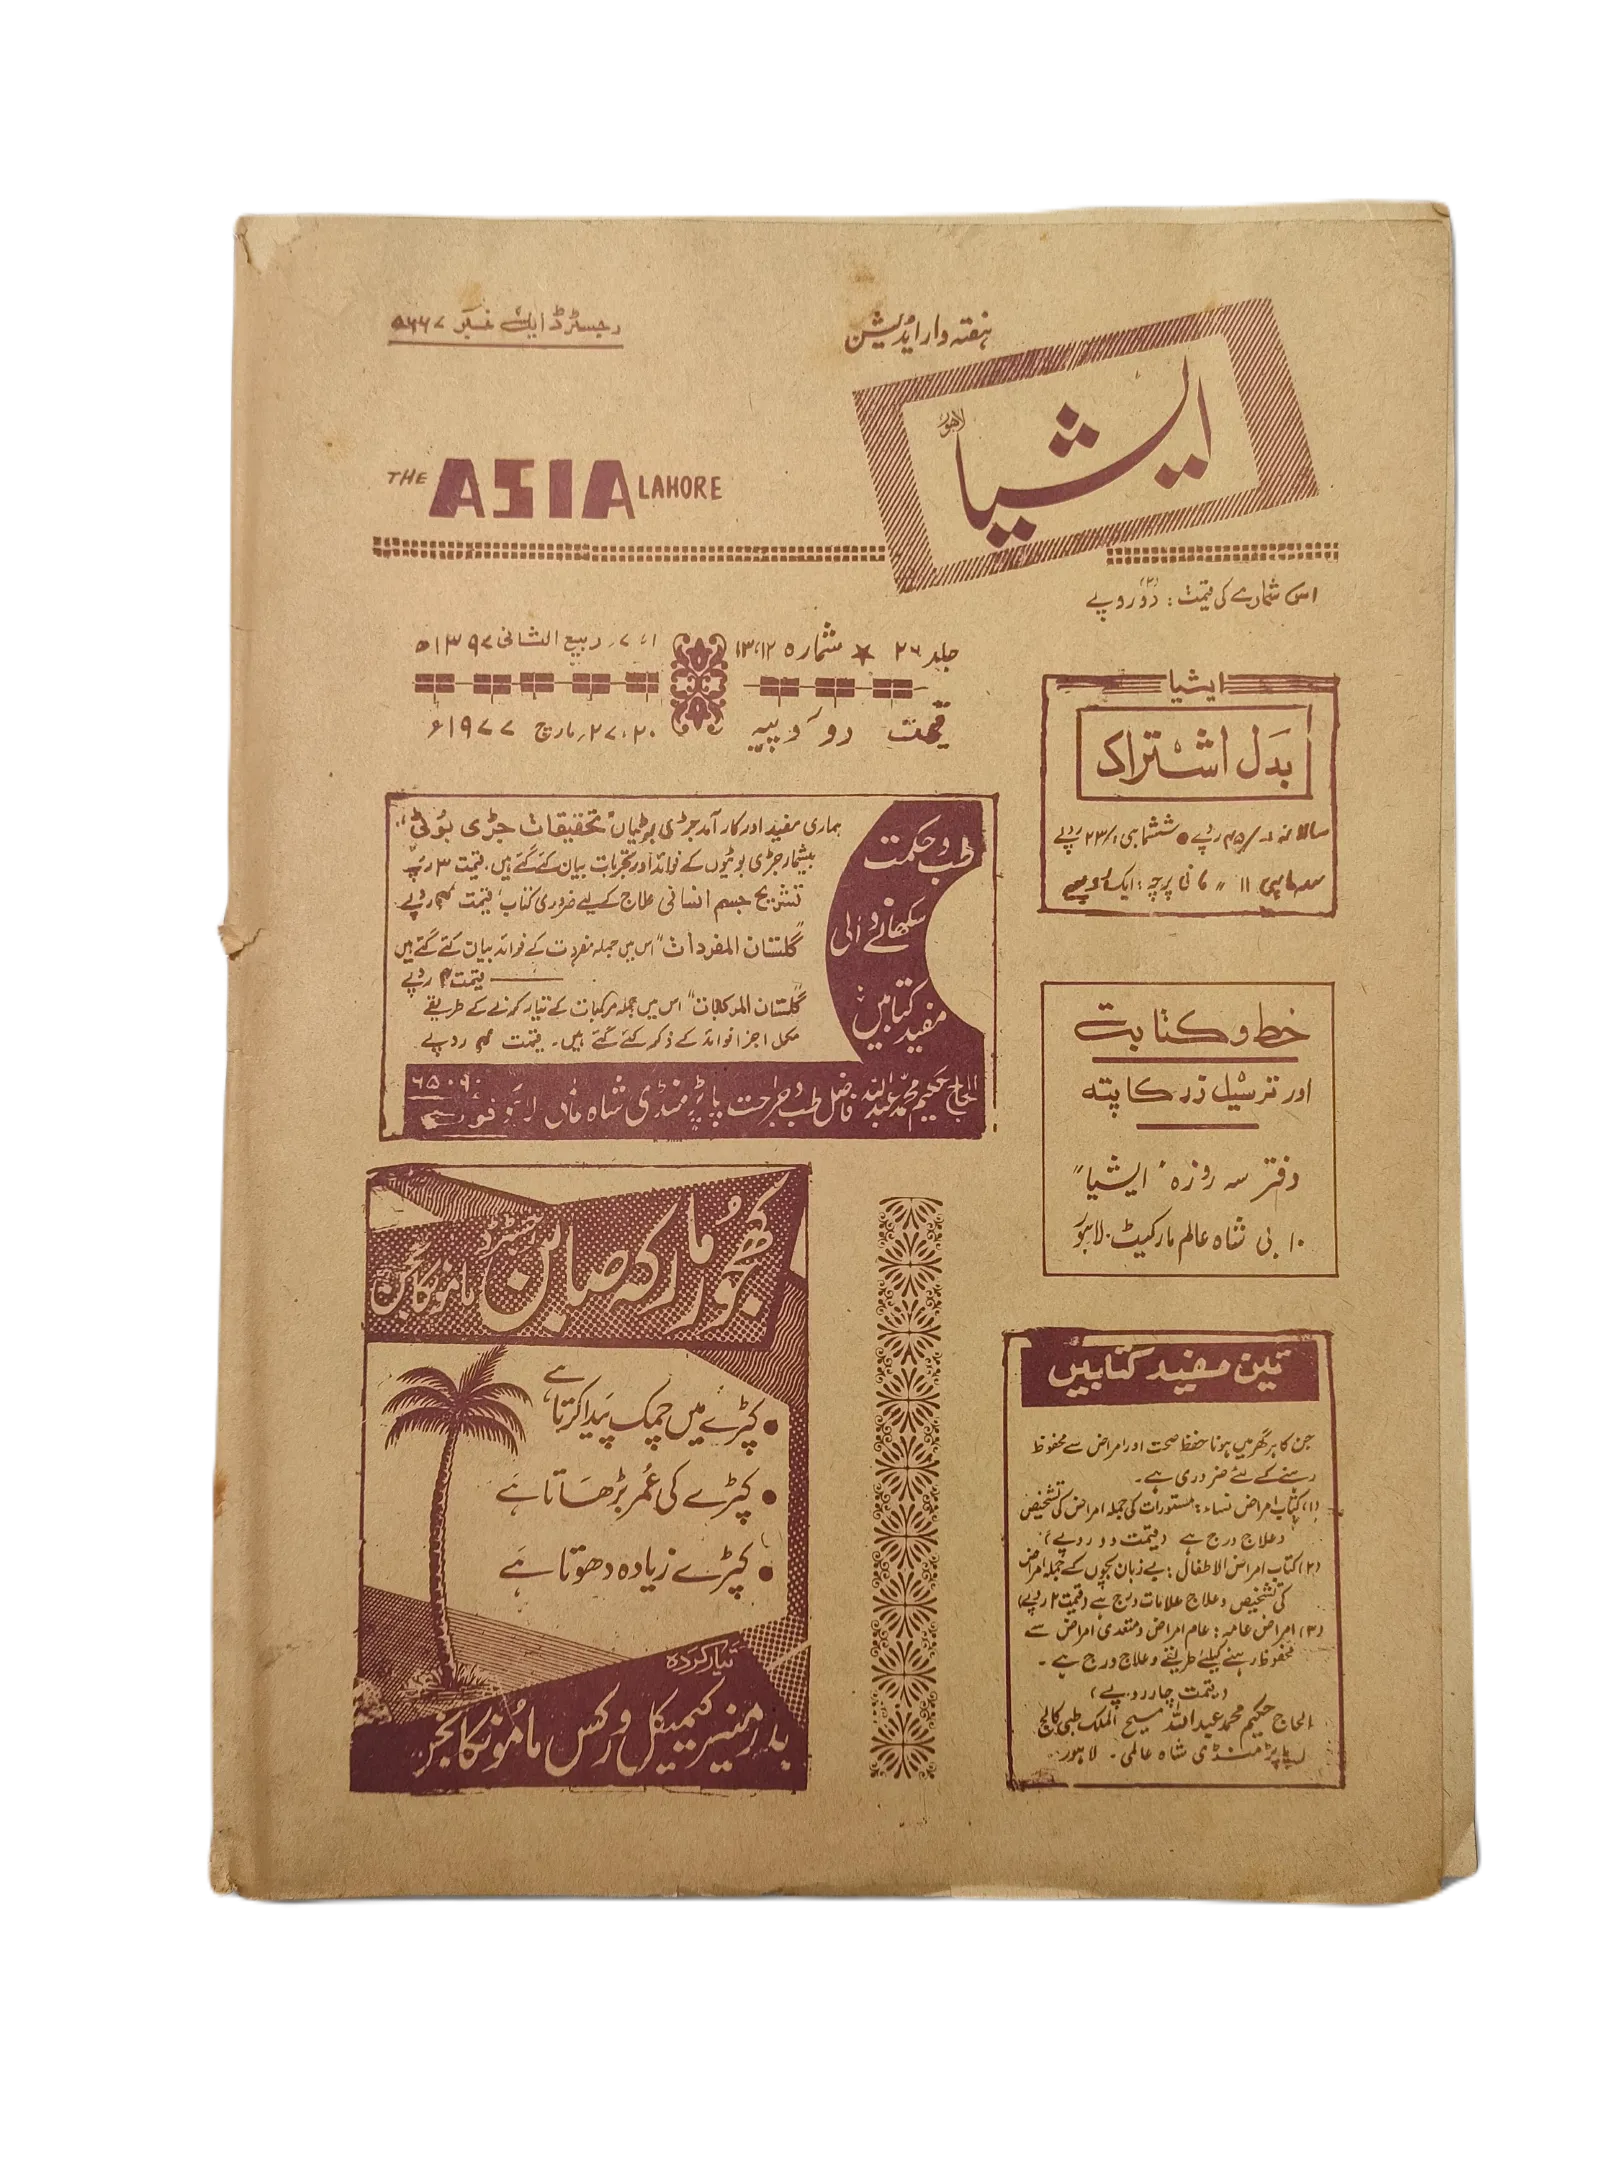 رجسٹرڈ ایل نمبر ۵۶۶۷
ہفتہ وار ایڈیشن
ایشیا
لاہور
THE ASIA LAHORE
اس شمارے کی قیمت : دو (۲) روپے
جلد ۲۶ ★ شمارہ ۱۳،۱۲
۷،۱؍ ربیع الثانی ۱۳۹۷ھ
قیمت دو روپیہ
۲۷،۲۰؍ مارچ ۱۹۷۷ء
ایشیا
بدل اشتراک
سالانہ ۴۵/- روپے ● ششماہی ۲۳/- روپے
سہ ماہی ۱۱ ״ فی پرچہ : ایک روپیہ
طب و حکمت
سکھانے والی
مفید کتابیں
ہماری مفید اور کار آمد جڑی بوٹیاں "تحقیقات جڑی بوٹی"
بیشمار جڑی بوٹیوں کے فوائد اور تجربات بیان کئے گئے ہیں۔ قیمت ۳ روپے
تشریح جسم انسانی علاج کے لیے ضروری کتاب، قیمت ۴ روپے
"گلستان المفردات" اس میں جملہ مفردات کے فوائد بیان کئے گئے ہیں
قیمت ۴ روپے
"گلستان المرکبات" اس میں جملہ مرکبات کے تیار کرنے کے طریقے
مکمل اجزا فوائد کے ذکر کئے گئے ہیں۔ قیمت ۴ روپے
الحاج حکیم محمد عبداللہ فاضل طب و جراحت پاپڑ منڈی شاہ عالمی لاہور فون ۶۵۰۶۰
خط و کتابت
اور ترسیل زر کا پتہ
دفتر سہ روزہ "ایشیا"
۱۰ بی شاہ عالم مارکیٹ۔ لاہور
کھجور مارکہ صابن رجسٹرڈ ماموں کانجن
● کپڑے میں چمک پیدا کرتا ہے
● کپڑے کی عمر بڑھاتا ہے
● کپڑے زیادہ دھوتا ہے
تیار کردہ
بدر منیر کیمیکل ورکس ماموں کانجن
تین مفید کتابیں
جن کا ہر گھر میں ہونا حفظ صحت اور امراض سے محفوظ
رہنے کے لئے ضروری ہے۔
(۱) کتاب امراض نساء : مستورات کی جملہ امراض کی تشخیص
و علاج درج ہے (قیمت دو روپے)
(۲) کتاب امراض الاطفال : بے زبان بچوں کے جملہ امراض
کی تشخیص و علاج علامات درج ہے (قیمت ۲ روپے)
(۳) امراض عامہ : عام امراض و متعدی امراض سے
محفوظ رہنے کیلئے طریقے و علاج درج ہے۔
(قیمت چار روپے)
الحاج حکیم محمد عبداللہ مسیح الملک طبی کالج
پاپڑ منڈی شاہ عالمی۔ لاہور